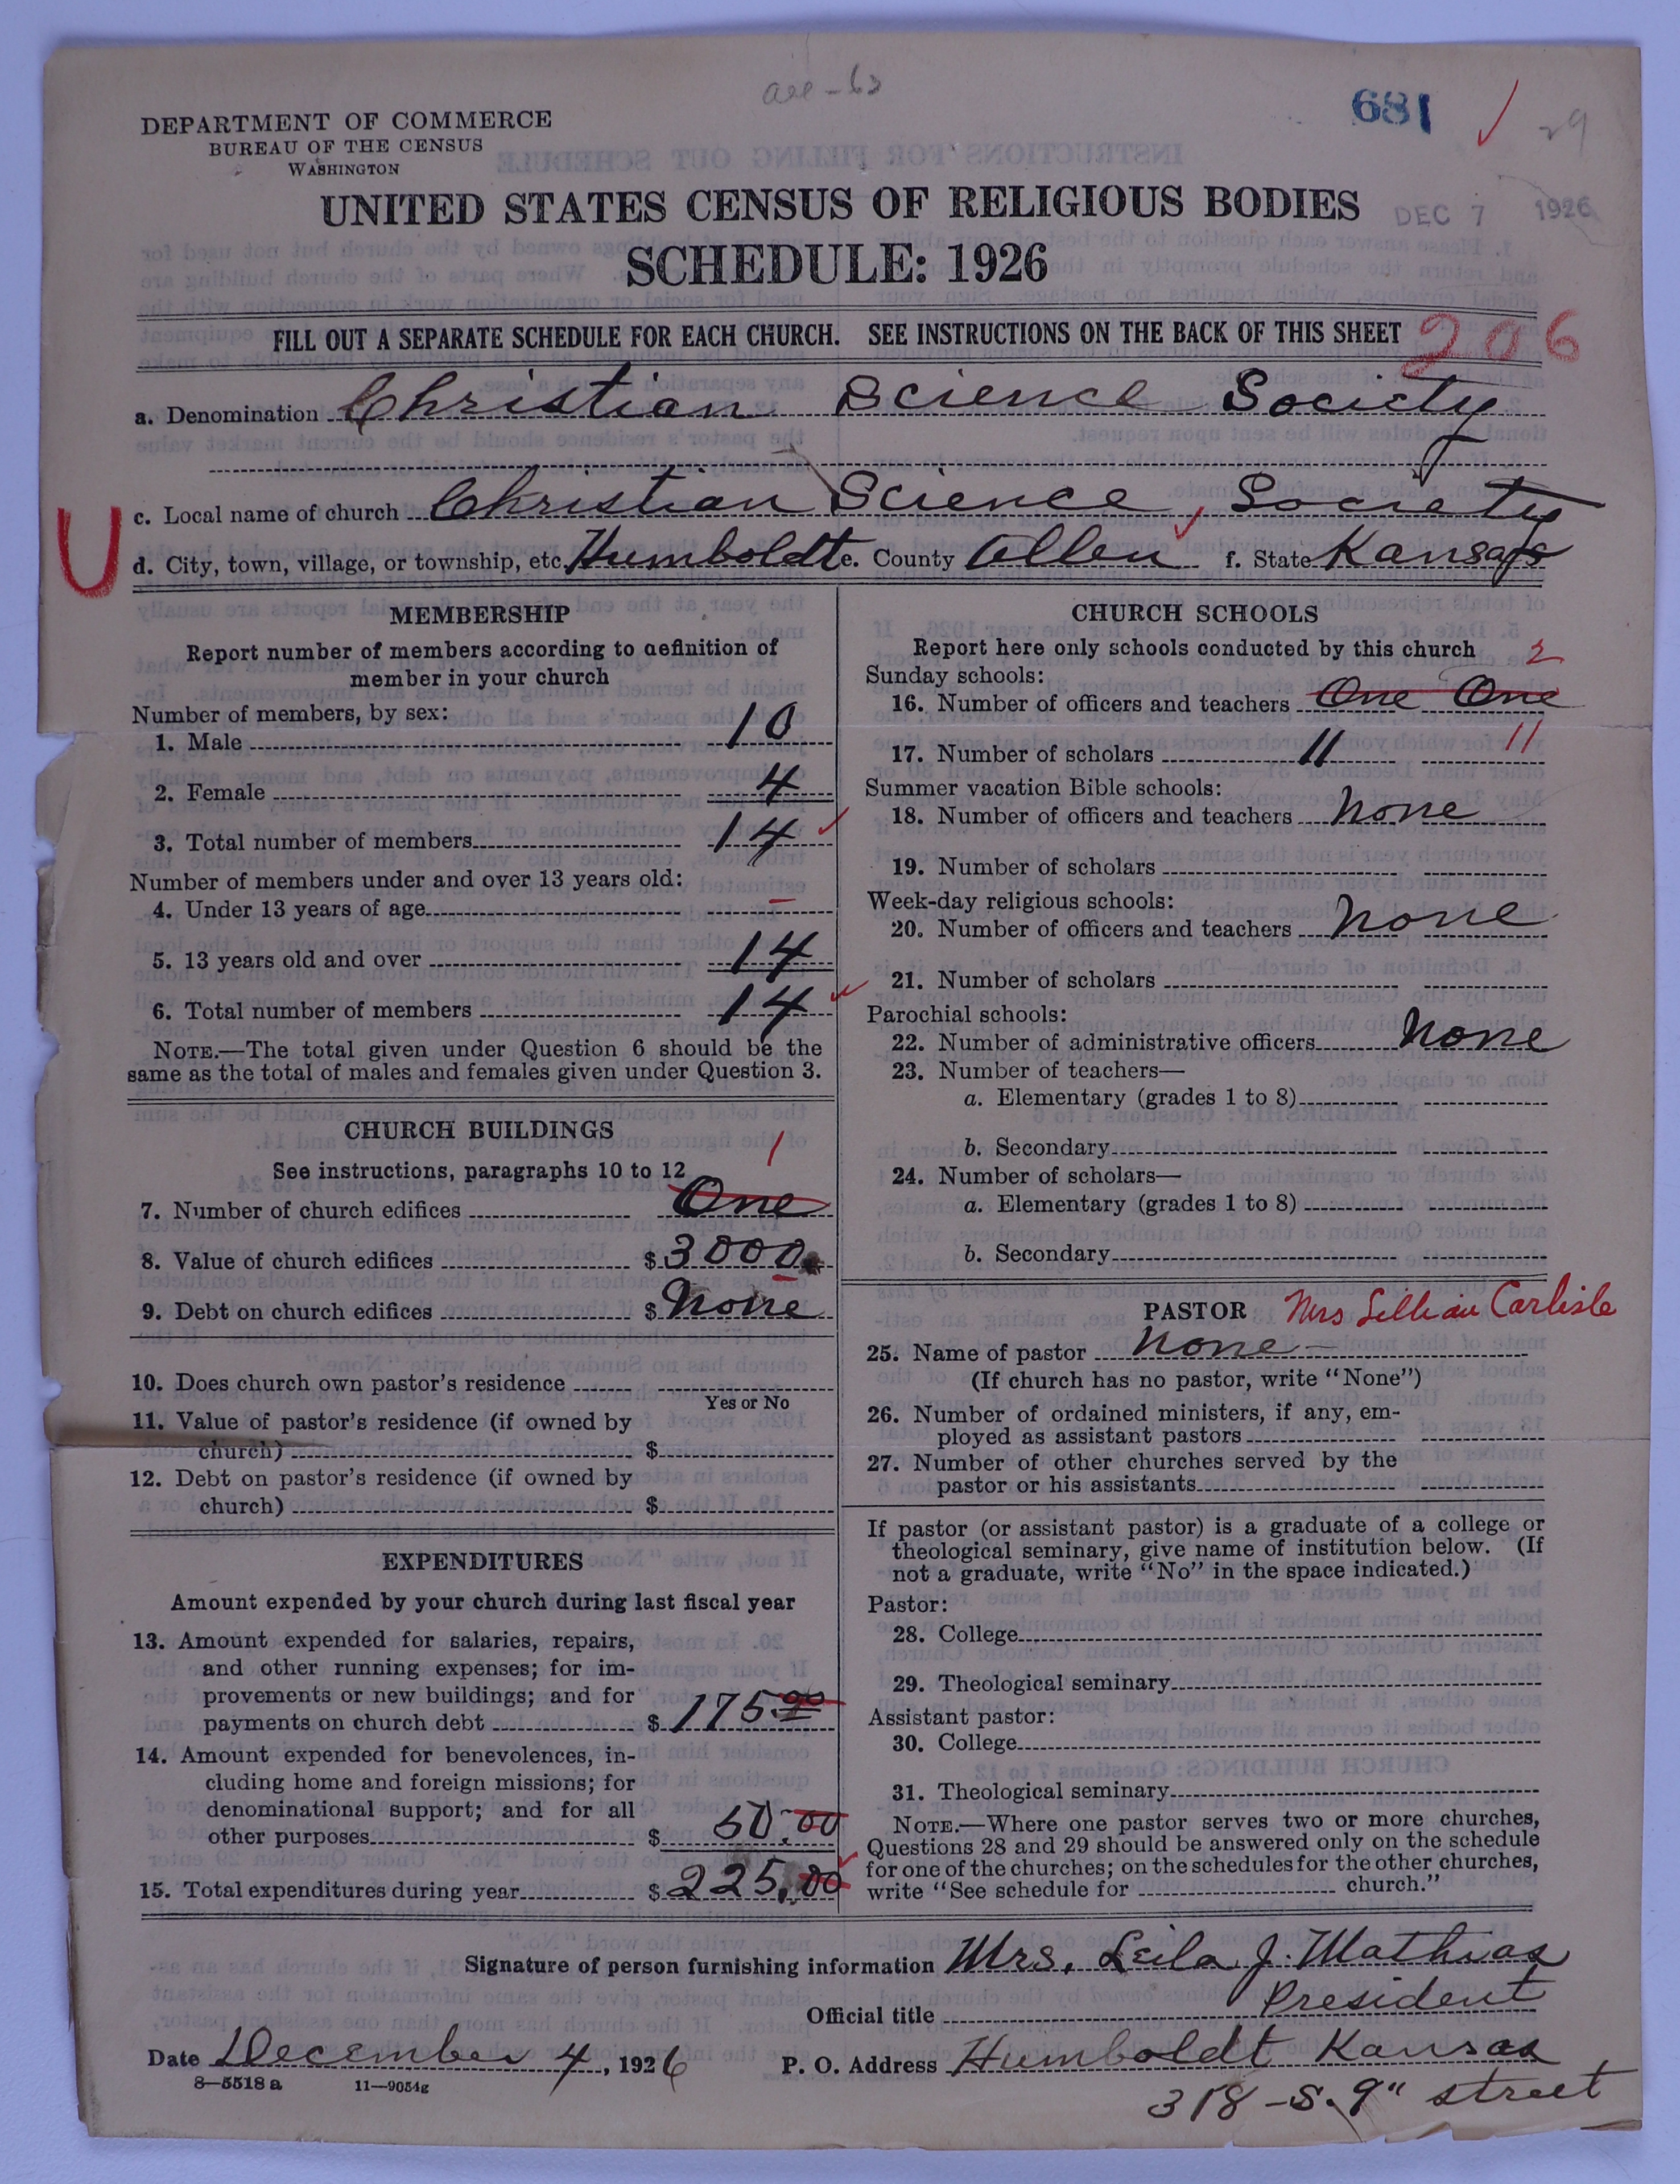 all-63
681
29
DEPARTMENT OF COMMERCE
BUREAU OF THE CENSUS
WASHINGTON
UNITED STATES CENSUS OF RELIGIOUS BODIES
DEC 7 1926
SCHEDULE: 1926
FILL OUT A SEPARATE SCHEDULE FOR EACH CHURCH. SEE INSTRUCTIONS ON THE BACK OF THIS SHEET
206
a. Denomination Christian Science Society
c. Local name of church Christian Science Society
U
d. City, town, village, or township, etc. Humboldt e. County Allen f. State Kansas
MEMBERSHIP
Report number of members according to definition of
member in your church
Number of members, by sex:
1. Male 10
2. Female 4
3. Total number of members 14
Number of members under and over 13 years old:
4. Under 13 years of age –
5. 13 years old and over 14
6. Total number of members 14
NOTE.—The total given under Question 6 should be the
same as the total of males and females given under Question 3.
CHURCH BUILDINGS
See instructions, paragraphs 10 to 12
1
7. Number of church edifices One
8. Value of church edifices $3000
9. Debt on church edifices $ None
10. Does church own pastor's residence
Yes or No
11. Value of pastor's residence (if owned by
church) $
12. Debt on pastor's residence (if owned by
church) $
EXPENDITURES
Amount expended by your church during last fiscal year
13. Amount expended for salaries, repairs,
and other running expenses; for im-
provements or new buildings; and for
payments on church debt $ 175.00
14. Amount expended for benevolences, in-
cluding home and foreign missions; for
denominational support; and for all
other purposes $ 50.00
15. Total expenditures during year $ 225.00
CHURCH SCHOOLS
Report here only schools conducted by this church
2
Sunday schools:
16. Number of officers and teachers One One
17. Number of scholars 11 11
Summer vacation Bible schools:
18. Number of officers and teachers None
19. Number of scholars
Week-day religious schools:
20. Number of officers and teachers None
21. Number of scholars
Parochial schools:
22. Number of administrative officers None
23. Number of teachers—
a. Elementary (grades 1 to 8)
b. Secondary
24. Number of scholars—
a. Elementary (grades 1 to 8)
b. Secondary
PASTOR Mrs Lillian Carlisle
25. Name of pastor None –
(If church has no pastor, write "None")
26. Number of ordained ministers, if any, em-
ployed as assistant pastors
27. Number of other churches served by the
pastor or his assistants
If pastor (or assistant pastor) is a graduate of a college or
theological seminary, give name of institution below. (If
not a graduate, write "No" in the space indicated.)
Pastor:
28. College
29. Theological seminary
Assistant pastor:
30. College
31. Theological seminary
NOTE.—Where one pastor serves two or more churches,
Questions 28 and 29 should be answered only on the schedule
for one of the churches; on the schedules for the other churches,
write "See schedule for church."
Signature of person furnishing information Mrs. Leila J. Mathias
Official title President
Date December 4, 1926 P. O. Address Humboldt Kansas
8—5518a 11—9054g
318 – S. 9" street